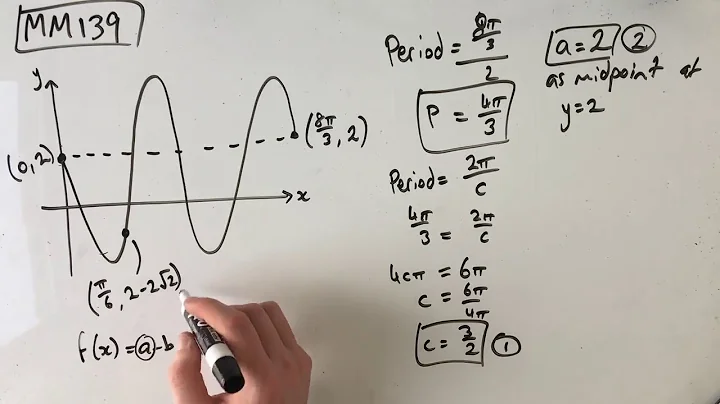 MM139
y
(0,2)
(8π/3, 2)
x
(π/6, 2-2√2)
f(x) = a-b
Period = 8π/3 / 2
P = 4π/3
Period = 2π/c
4π/3 = 2π/c
4cπ = 6π
c = 6π/4π
c = 3/2 1
a = 2 2
as midpoint at
y=2